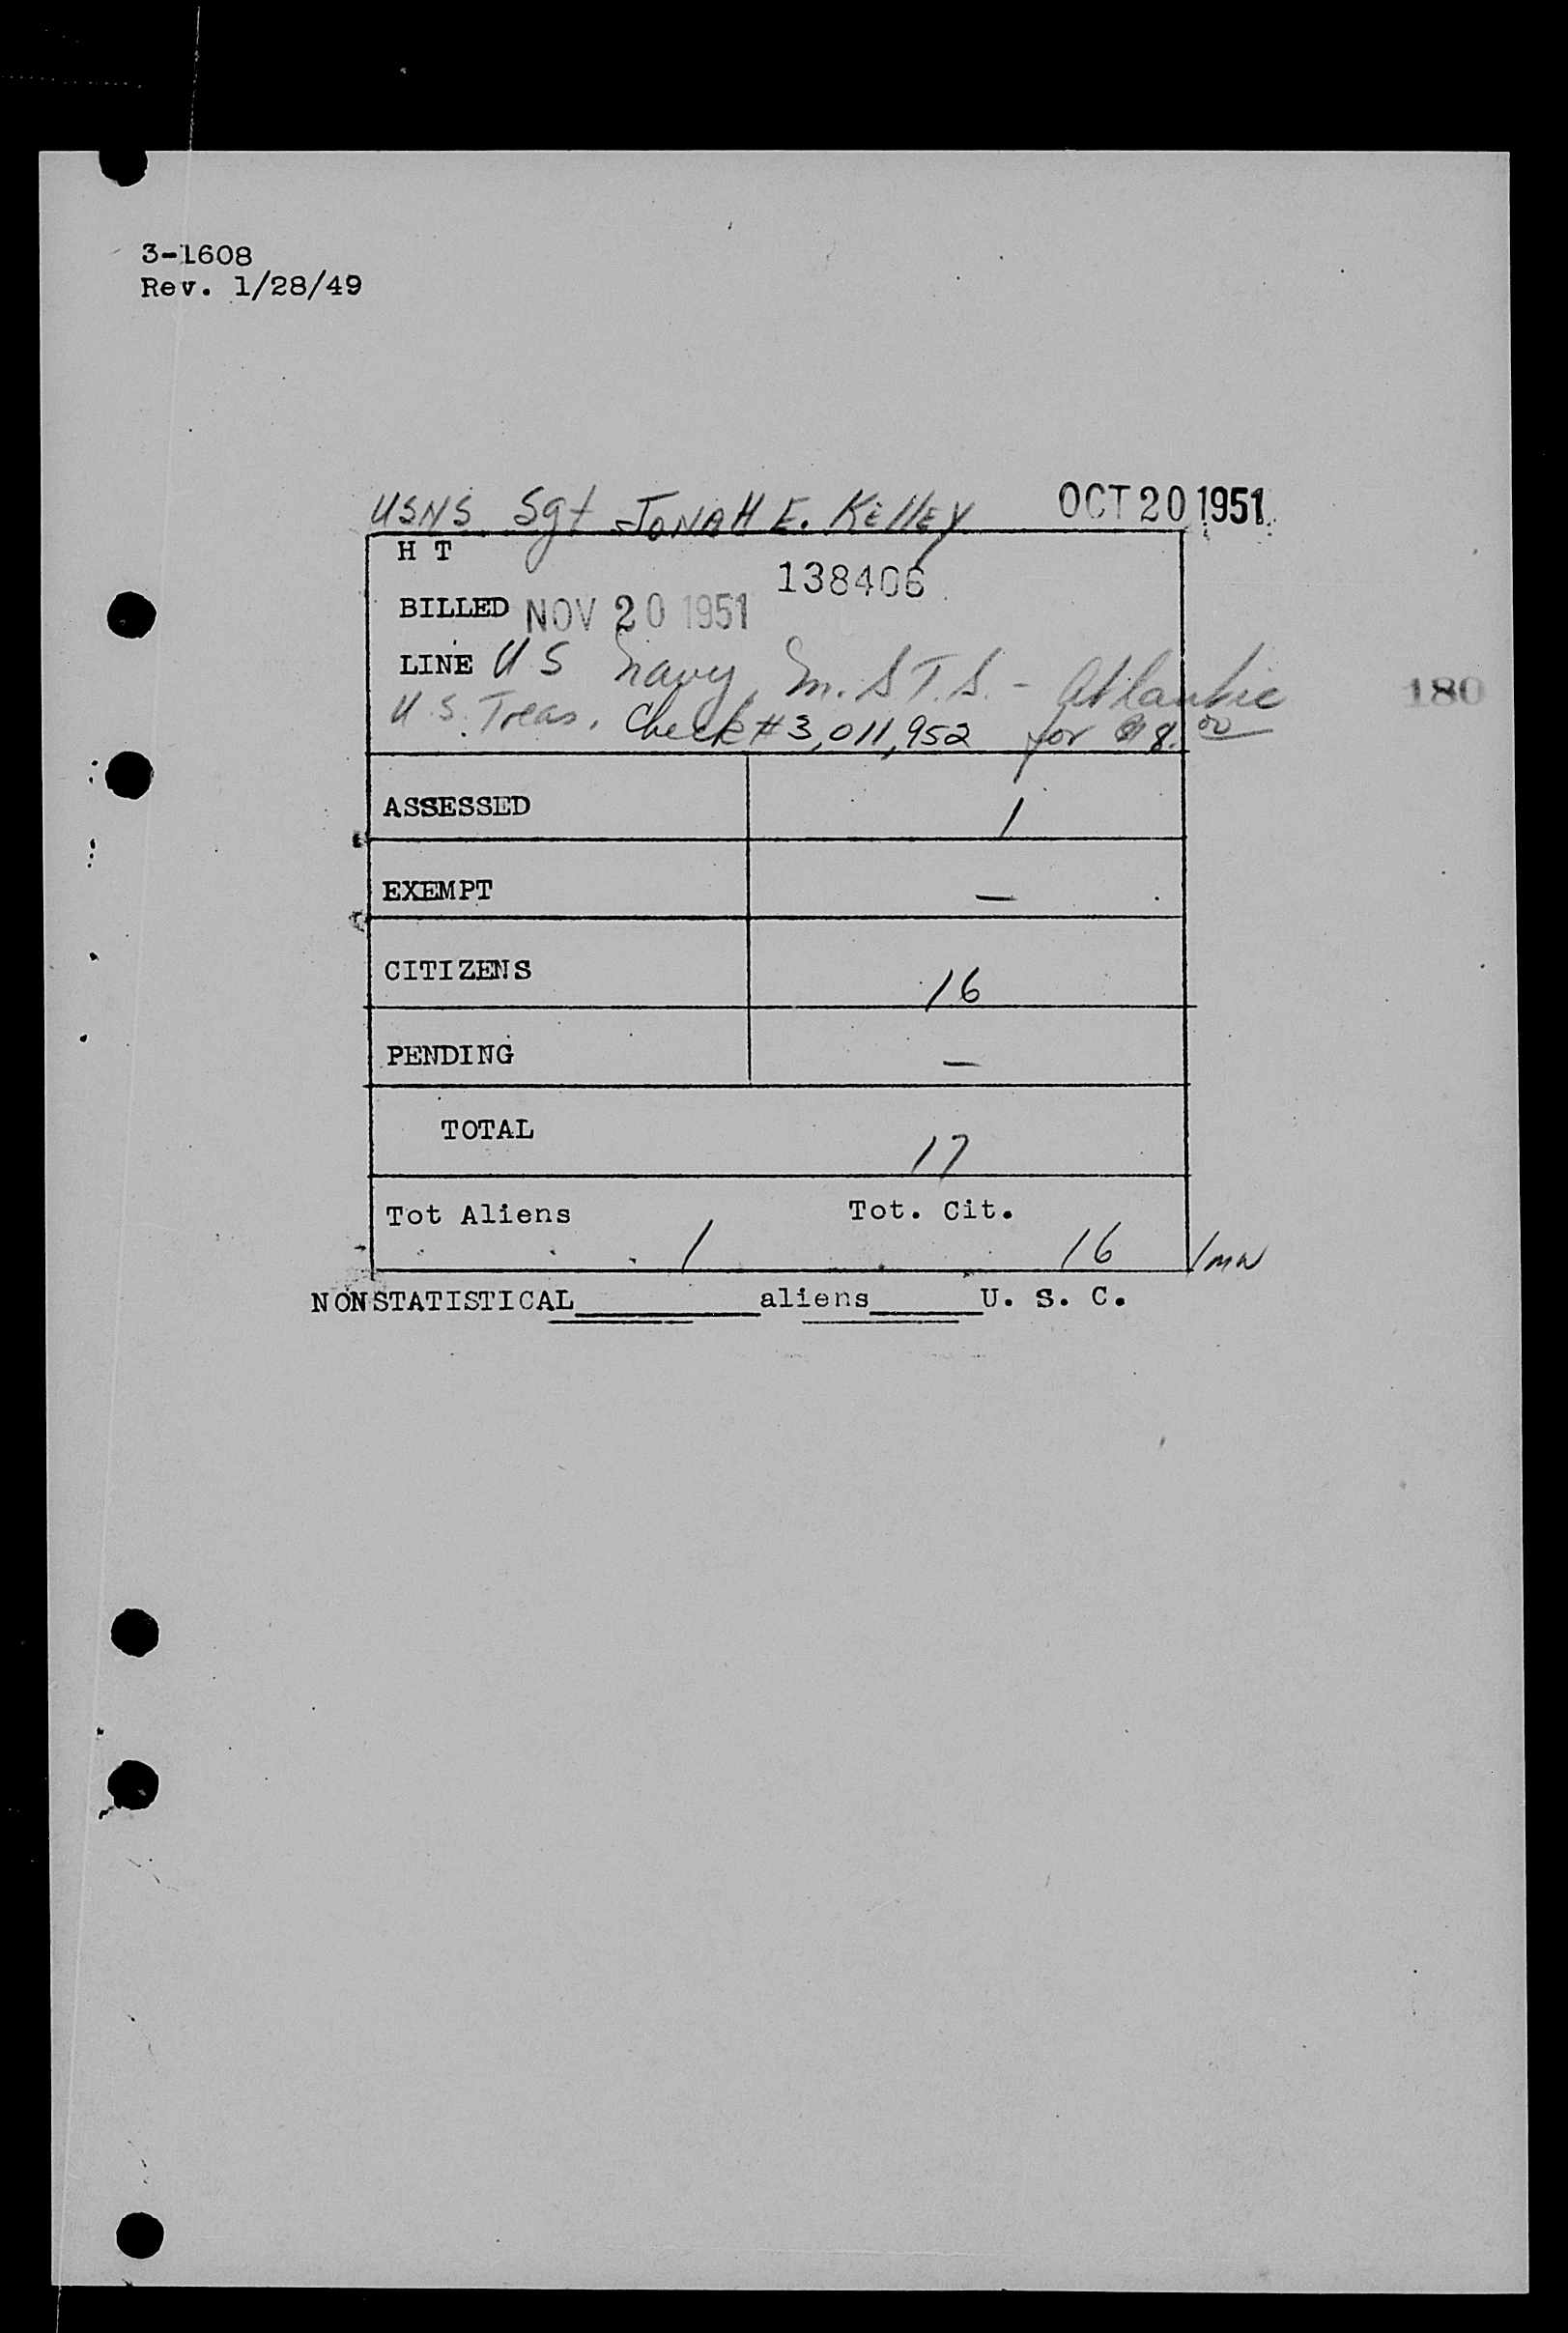 3-1608
Rev. 1/28/49
USNS Sgt JONAH E. KELLEY OCT 20 1951
H T
138406
BILLED NOV 20 1951
LINE U S Navy M.S.T.S. - Atlantic 180
U.S. Treas. Check # 3,011,952 for $8.00
ASSESSED 1
EXEMPT —
CITIZENS 16
PENDING —
TOTAL 17
Tot Aliens Tot. Cit.
1 16 /mw
NONSTATISTICAL__________aliens______U. S. C.